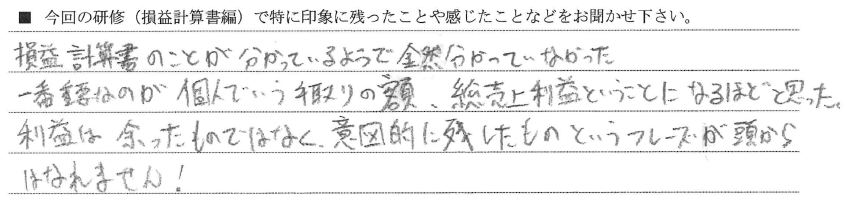 ■ 今回の研修（損益計算書編）で特に印象に残ったことや感じたことなどをお聞かせ下さい。
損益計算書のことが分かっているようで全然分かっていなかった
一番重要なのが個人でいう手取りの額、総売上利益ということになるほどと思った。
利益は余ったものではなく、意図的に残したものというフレーズが頭から
はなれません！